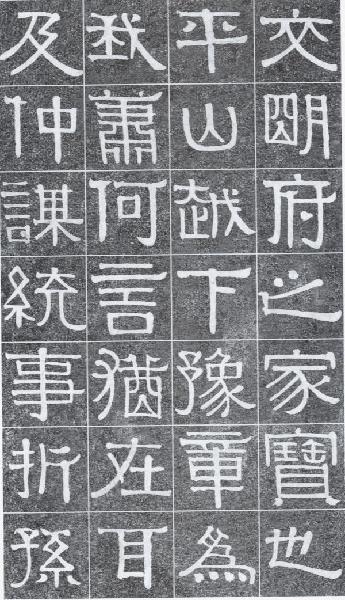 交明府之家寶也
平山越下豫章為
我蕭何言猶在耳
及仲謀統事折孫